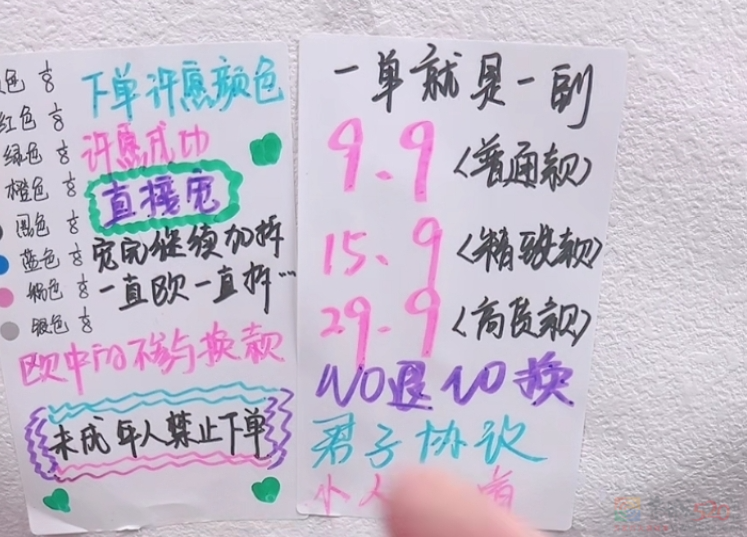 色
红色
绿色
橙色
黑色
蓝色
粉色
银色
下单许愿颜色
许愿成功
直接宠
宠完继续加拆
一直欧一直拆…
欧中的不参与换款
未成年人禁止下单
一单就是一副
9.9〈普通款〉
15.9〈精致款〉
29.9〈高货款〉
NO退NO换
君子协议
小人